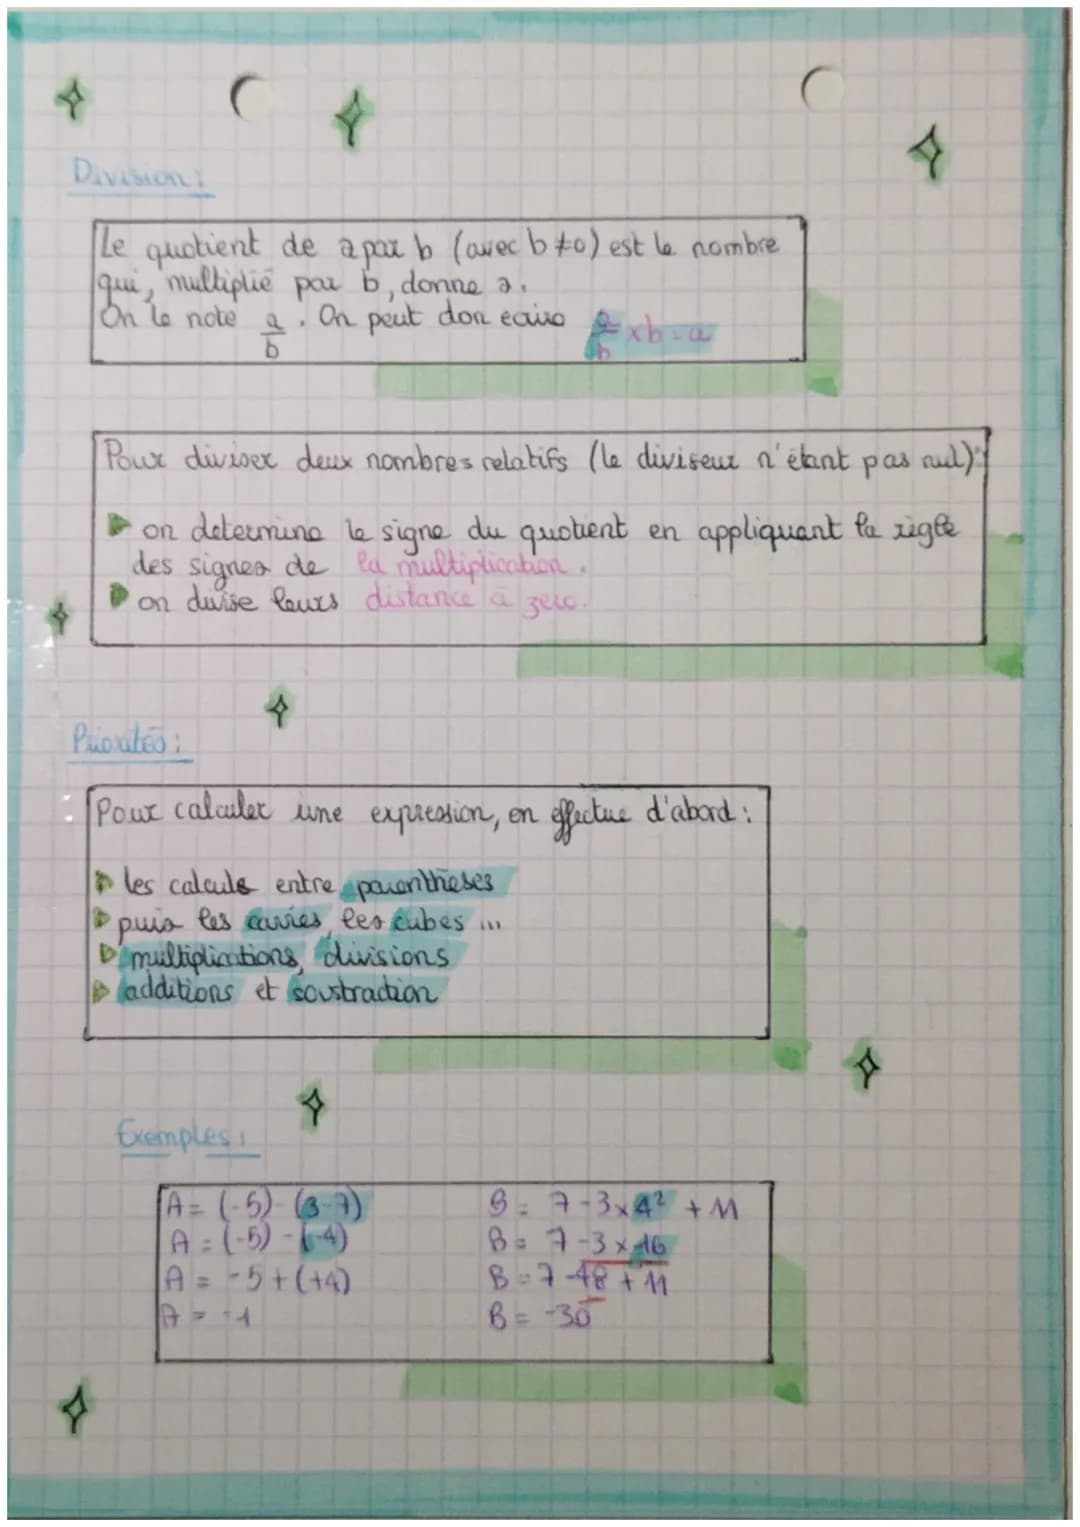 Division :
Le quotient de a par b (avec b ≠ 0) est le nombre
qui, multiplié par b, donne a.
On le note a/b. On peut don ecrire a/b × b = a
Pour diviser deux nombres relatifs (le diviseur n'étant pas nul) :
on determine le signe du quotient en appliquant la règle
des signes de la multiplication.
on divise leurs distance à zero.
Priorités :
Pour calculer une expression, on effectue d'abord :
les calculs entre parenthèses
puis les carrés, les cubes ...
multiplications, divisions
additions et soustraction
Exemples :
A = (-5) - (3-7)
A = (-5) - (-4)
A = -5 + (+4)
A = -1
B = 7 - 3 × 4² + 11
B = 7 - 3 × 16
B = 7 - 48 + 11
B = -30